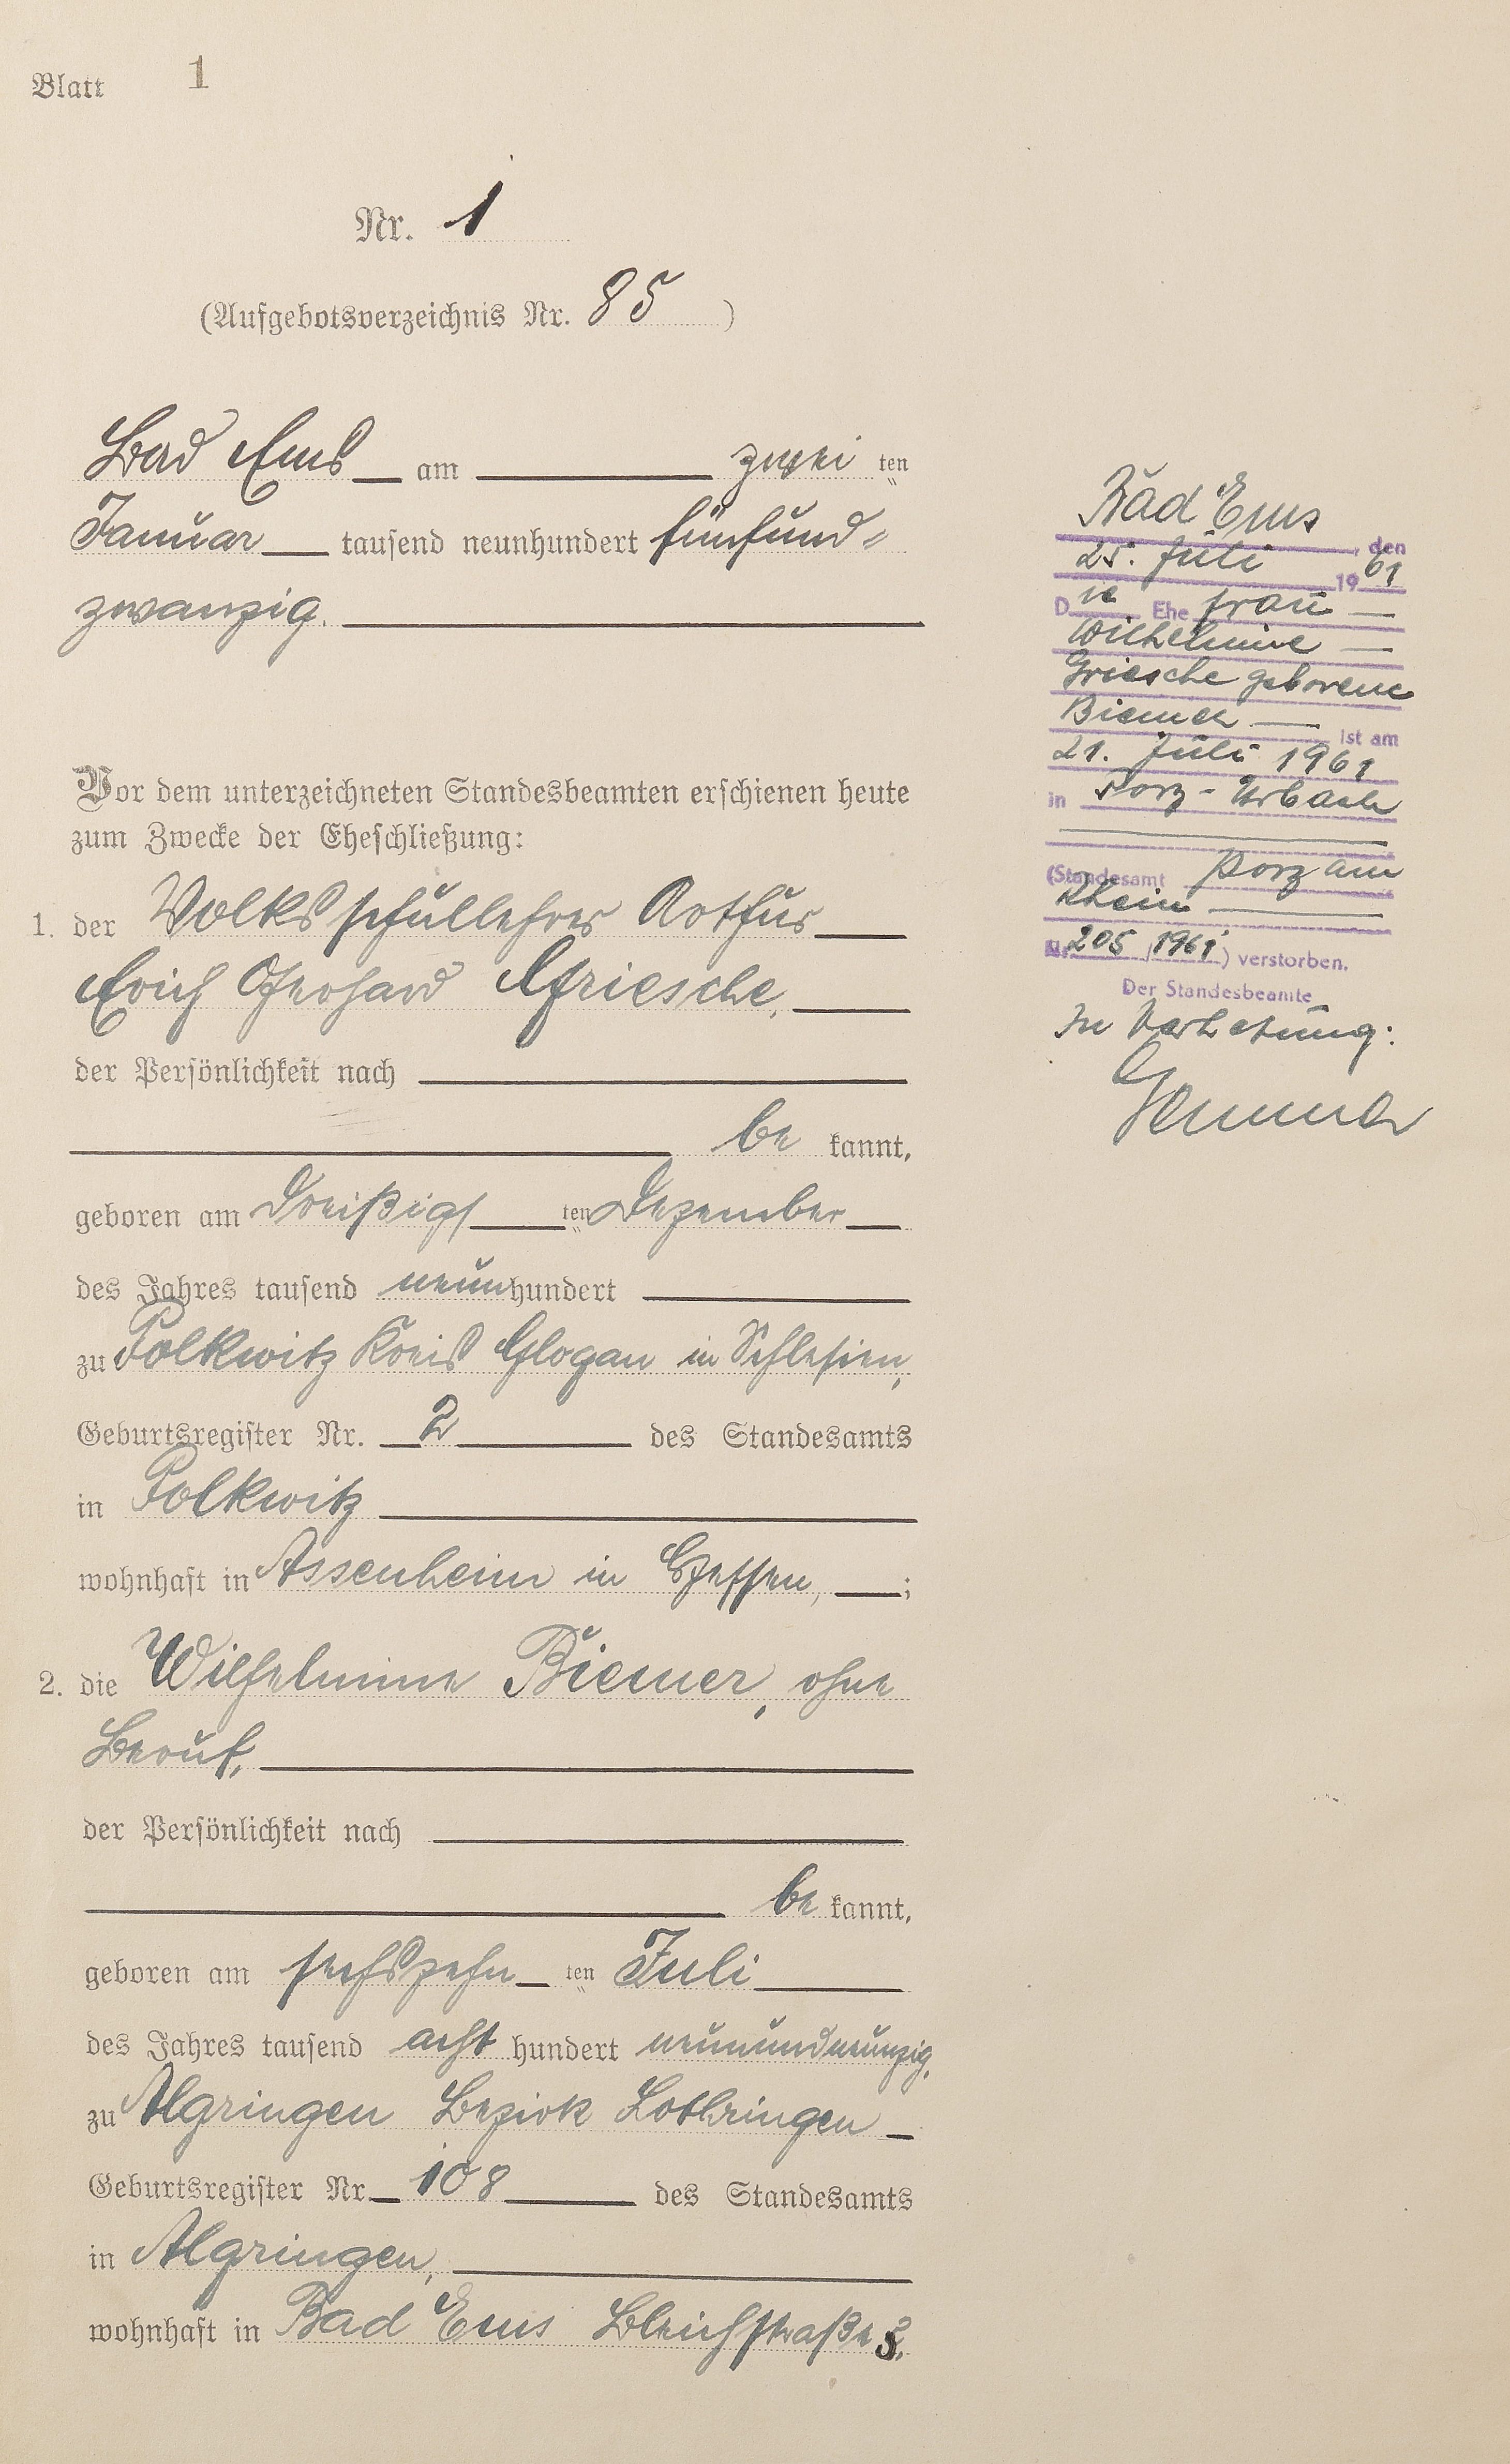 Blatt 1
Nr. 1
(Aufgebotsverzeichnis Nr. 85)
Bad Ems am zwei ten
Januar tausend neunhundert fünfund=
zwanzig.
Vor dem unterzeichneten Standesbeamten erschienen heute
zum Zwecke der Eheschließung:
1. der Volksschullehrer Arthur
Erich Gerhard Griesche,
der Persönlichkeit nach
be kannt,
geboren am dreißigs ten Dezember
des Jahres tausend neun hundert
zu Polkwitz Kreis Glogau in Schlesien,
Geburtsregister Nr. 2 des Standesamts
in Polkwitz
wohnhaft in Assenheim in Hessen, ;
2. die Wilhelmine Biemer, ohne
Beruf,
der Persönlichkeit nach
be kannt,
geboren am sechszehn ten Juli
des Jahres tausend acht hundert neunundneunzig,
zu Algringen Bezirk Lothringen
Geburtsregister Nr. 108 des Standesamts
in Algringen,
wohnhaft in Bad Ems Bleichstraße
Bad Ems, den
25. Juli 1961
Die Ehe frau
Wilhelmine
Griesche geborene
Biemer ist am
21. Juli 1961
in Porz-Urbach
(Standesamt Porz am
Rhein
Nr. 205/1961) verstorben.
Der Standesbeamte
In Vertretung: